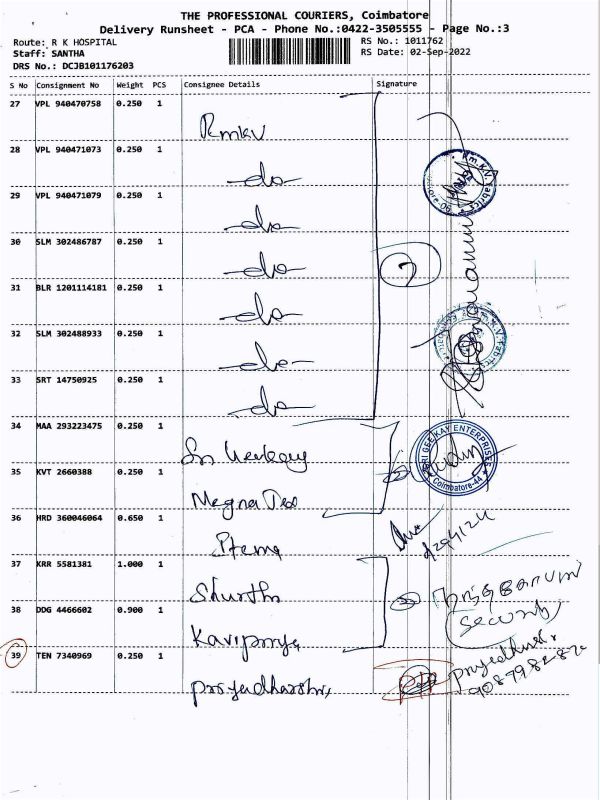 THE PROFESSIONAL COURIERS, Coimbatore
Delivery Runsheet - PCA - Phone No.:0422-3505555 - Page No.:3
Route: R K HOSPITAL
RS No.: 1011762
Staff: SANTHA
RS Date: 02-Sep-2022
DRS No.: DCJB101176203
S No Consignment No Weight PCS Consignee Details Signature
27 VPL 940470758 0.250 1
Rmkv
28 VPL 940471073 0.250 1
-do-
29 VPL 940471079 0.250 1
-do-
30 SLM 302486787 0.250 1
-do-
31 BLR 1201114181 0.250 1
-do-
32 SLM 302488933 0.250 1
-do-
33 SRT 14750925 0.250 1
-do-
34 MAA 293223475 0.250 1
SRI GEE KAY ENTERPRISES
Coimbatore-44
35 KVT 2660388 0.250 1
Magna
36 HRD 360046064 0.650 1
Prema
37 KRR 5581381 1.000 1
Shruthi
38 DDG 4466602 0.900 1
Security
Karipriya
39 TEN 7340969 0.250 1
Priyadharshini